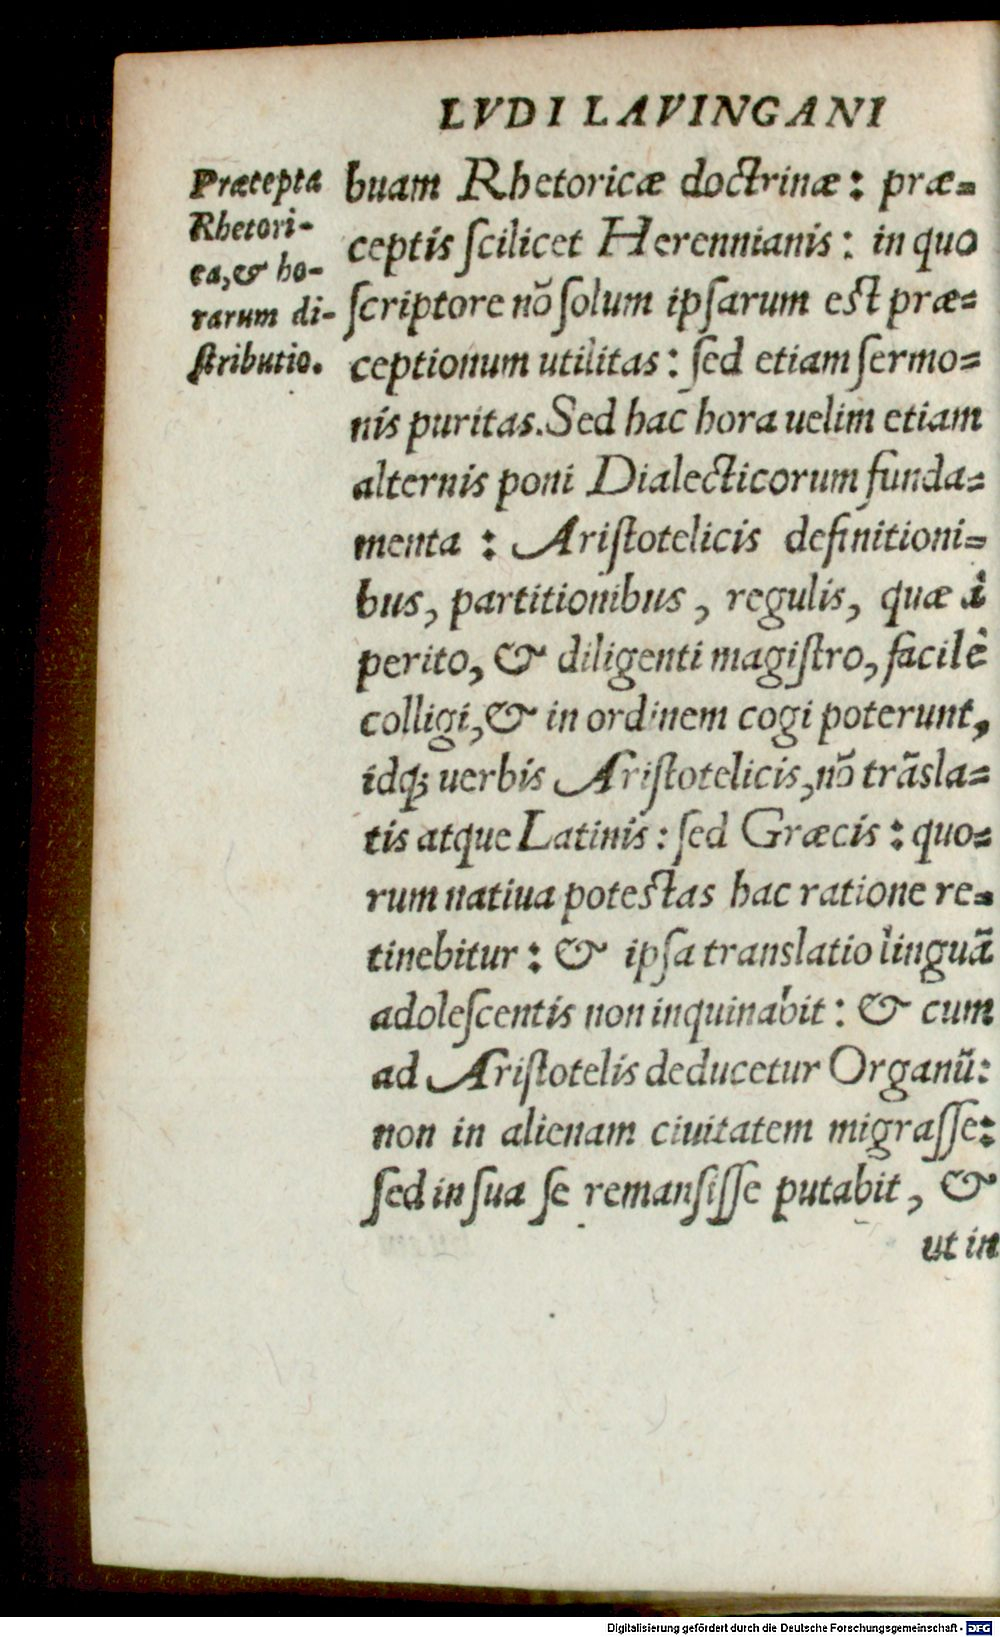 LVDI LAVINGANI
Præcepta
Rhetori-
ca, & ho-
rarum di-
ſtributio.
buam Rhetoricæ doctrinæ: præ-
ceptis ſcilicet Herennianis: in quo
ſcriptore nõ ſolum ipſarum eſt præ-
ceptionum utilitas: ſed etiam ſermo-
nis puritas. Sed hac hora uelim etiam
alternis poni Dialecticorum funda-
menta: Ariſtotelicis definitioni-
bus, partitionibus, regulis, quæ à
perito, & diligenti magiſtro, facilè
colligi, & in ordinem cogi poterunt,
idq́; uerbis Ariſtotelicis, nõ trãsla-
tis atque Latinis: ſed Græcis: quo-
rum natiua poteſtas hac ratione re-
tinebitur: & ipſa translatio linguã
adoleſcentis non inquinabit: & cum
ad Ariſtotelis deducetur Organũ:
non in alienam ciuitatem migraſſe:
ſed in ſua ſe remanſiſſe putabit, &
ut in
Digitalisierung gefördert durch die Deutsche Forschungsgemeinschaft - DFG